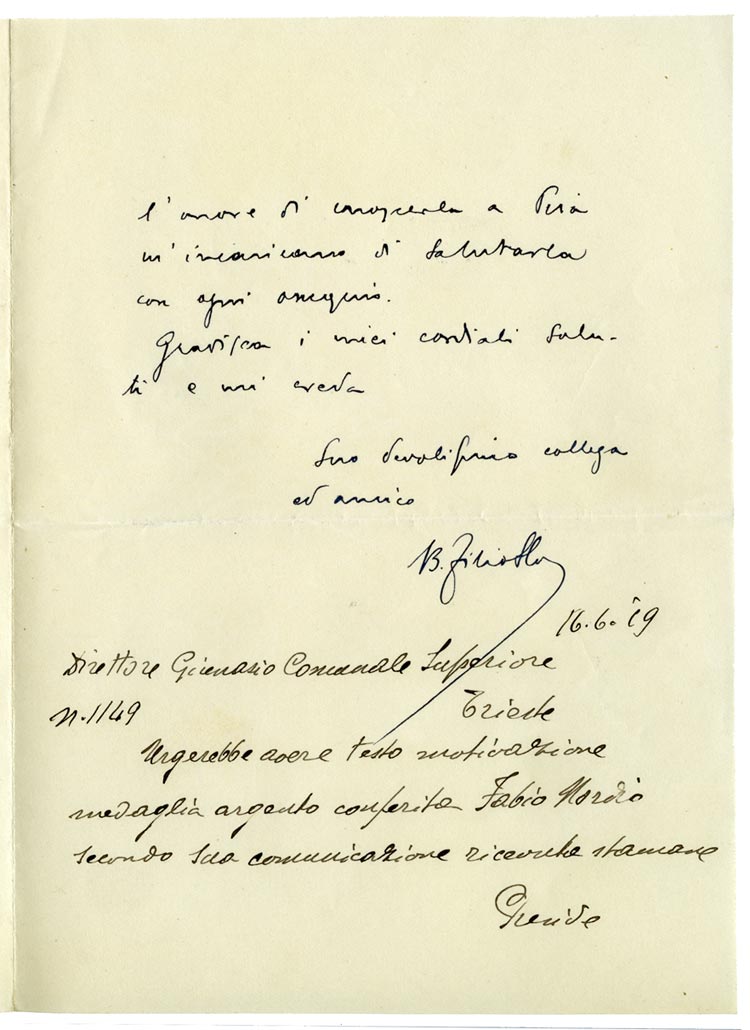 l'onore di conoscerla a Pisa
m'incaricano di salutarla
con ogni ossequio.
Gradisca i miei cordiali salu-
ti e mi creda
Suo devotissimo collega
ed amico
B. Ziliotto
16.6.'19
Direttore Ginnasio Comunale Superiore
N. 1149 Trieste
Urgerebbe avere testo motivazione
medaglia argento conferita Fabio Nordio
secondo sua comunicazione ricevuta stamane
Preside